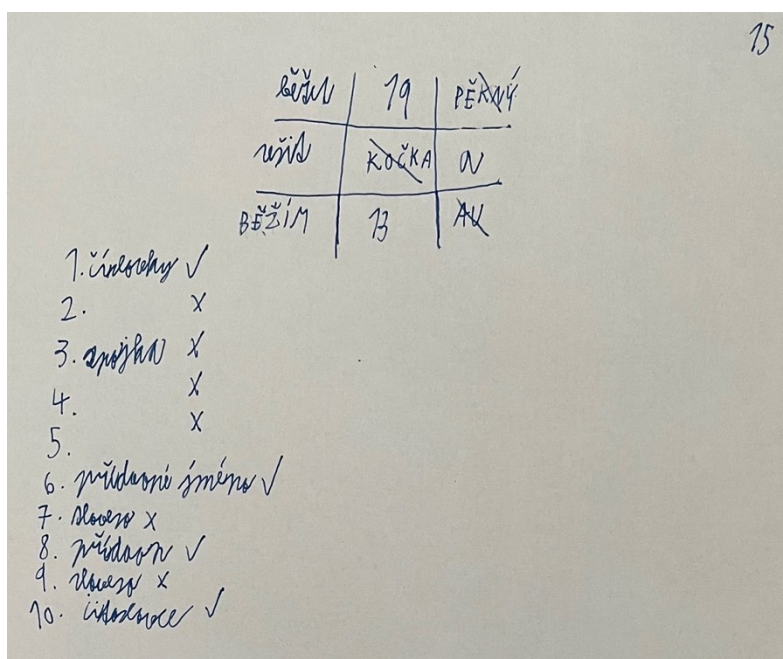 15
běžel 19 PĚKNÝ
KOČKA a
BĚŽÍM 13 AU
1. číslovky ✓
2. x
3. spojka x
4. x
5. x
6. přídavné jméno ✓
7. sloveso x
8. přídavn ✓
9. sloveso x
10. citoslovce ✓